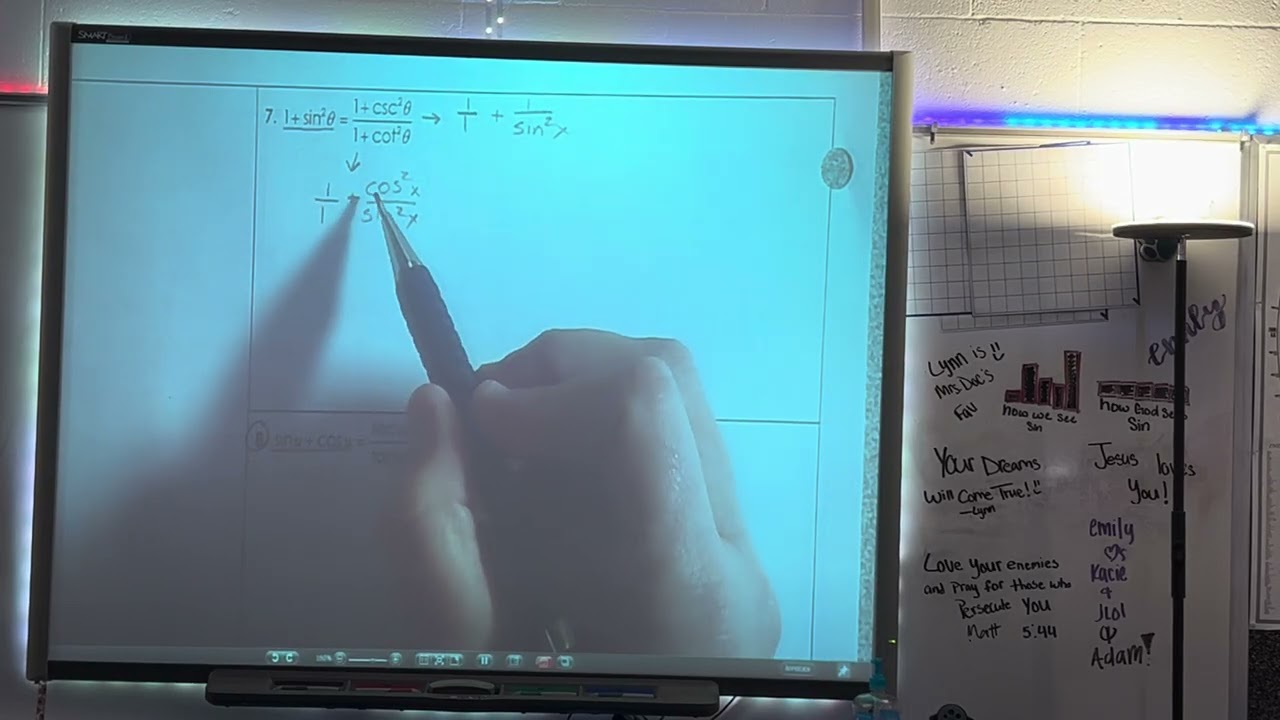 SMART Board
7. 1+sin²θ = 1+csc²θ / 1+cot²θ → 1/1 + 1/sin²x
↓
1/1 + cos²x / sin²x
8 sinu + cosu =
160%
emily
Lynn is
Mrs Doc's
Fav
how we see
Sin
how God sees
Sin
Your Dreams
Will Come True!
-Lynn
Jesus loves
You!
Love your enemies
and pray for those who
Persecute You
Matt 5:44
emily
Kacie
&
Adam!